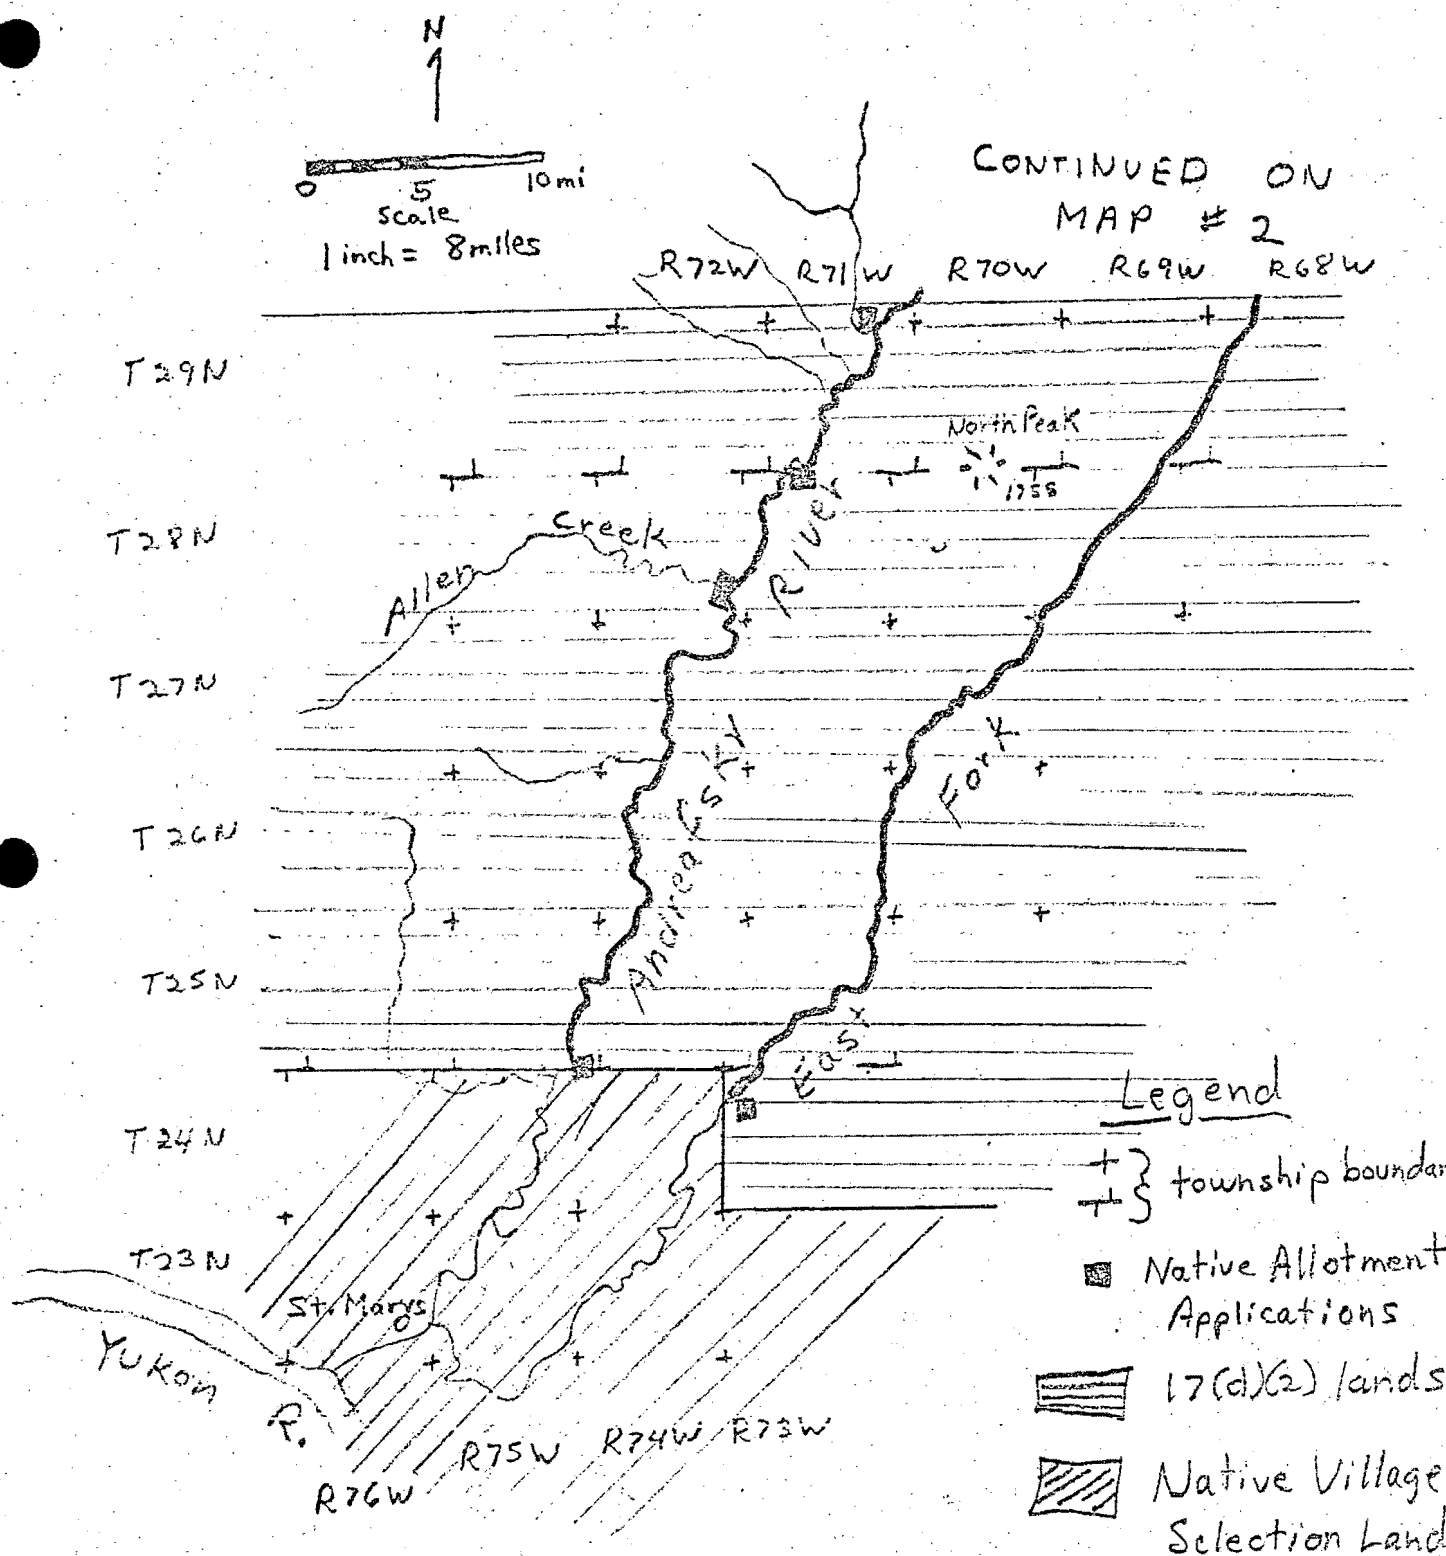 N
0 5 10 mi
scale
1 inch = 8 miles
CONTINUED ON
MAP # 2
R72W R71W R70W R69W R68W
T29N
North Peak
1758
T28N
Allen Creek
River
T27N
Andreafsky
Fork
T26N
T25N
East
T24N
T23N
St. Marys
Yukon
R.
R76W
R75W R74W R73W
Legend
township boundar
Native Allotment
Applications
17(d)(2) lands
Native Village
Selection Land